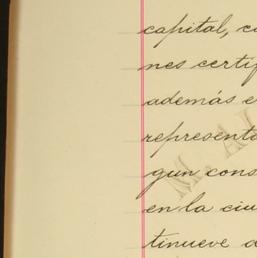 capital, co
nes certif
además e
representa
gun cons
en la ciu
tinueve d
M. AL